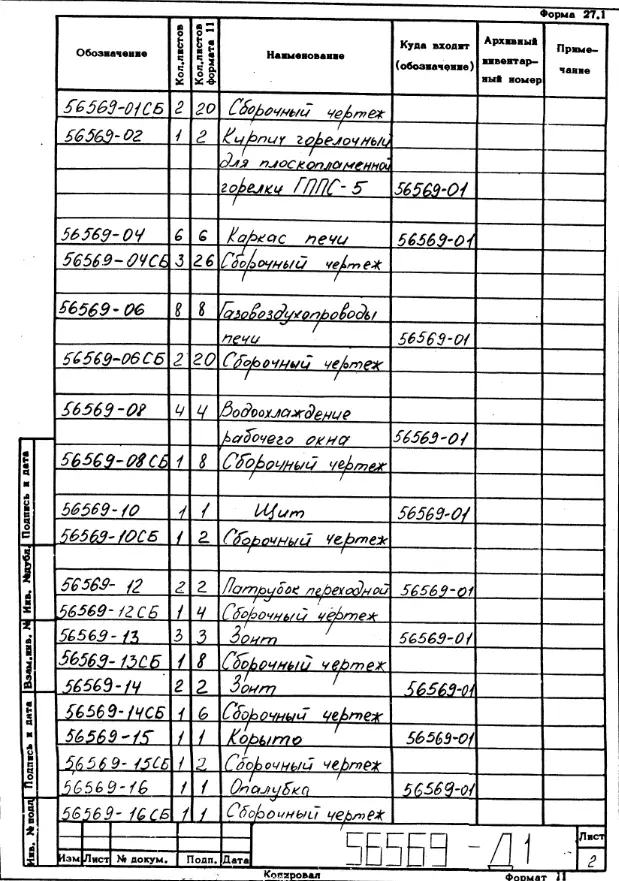 Форма 27.1
Обозначение Кол.листов Кол.листов формата 11 Наименование Куда входит (обозначение) Архивный инвентарный номер Примечание
56569-01СБ 2 20 Сборочный чертеж
56569-02 1 2 Кирпич горелочный
для плоскопламенной
горелки ГППС-5 56569-01
56569-04 6 6 Каркас печи 56569-01
56569-04СБ 3 26 Сборочный чертеж
56569-06 8 8 Газовоздухопроводы
печи 56569-01
56569-06СБ 2 20 Сборочный чертеж
56569-08 4 4 Водоохлаждение
рабочего окна 56569-01
56569-08СБ 1 8 Сборочный чертеж
56569-10 1 1 Щит 56569-01
56569-10СБ 1 2 Сборочный чертеж
56569-12 2 2 Патрубок переходной 56569-01
56569-12СБ 1 4 Сборочный чертеж
56569-13 3 3 Зонт 56569-01
56569-13СБ 1 8 Сборочный чертеж
56569-14 2 2 Зонт 56569-01
56569-14СБ 1 6 Сборочный чертеж
56569-15 1 1 Корыто 56569-01
56569-15СБ 1 2 Сборочный чертеж
56569-16 1 1 Опалубка 56569-01
56569-16СБ 1 1 Сборочный чертеж
Инв. № подл. Подпись и дата Взам.инв. № Инв. № дубл. Подпись и дата
Изм Лист № докум. Подп. Дата
56569-Д1
Лист
2
Копировал Формат 11